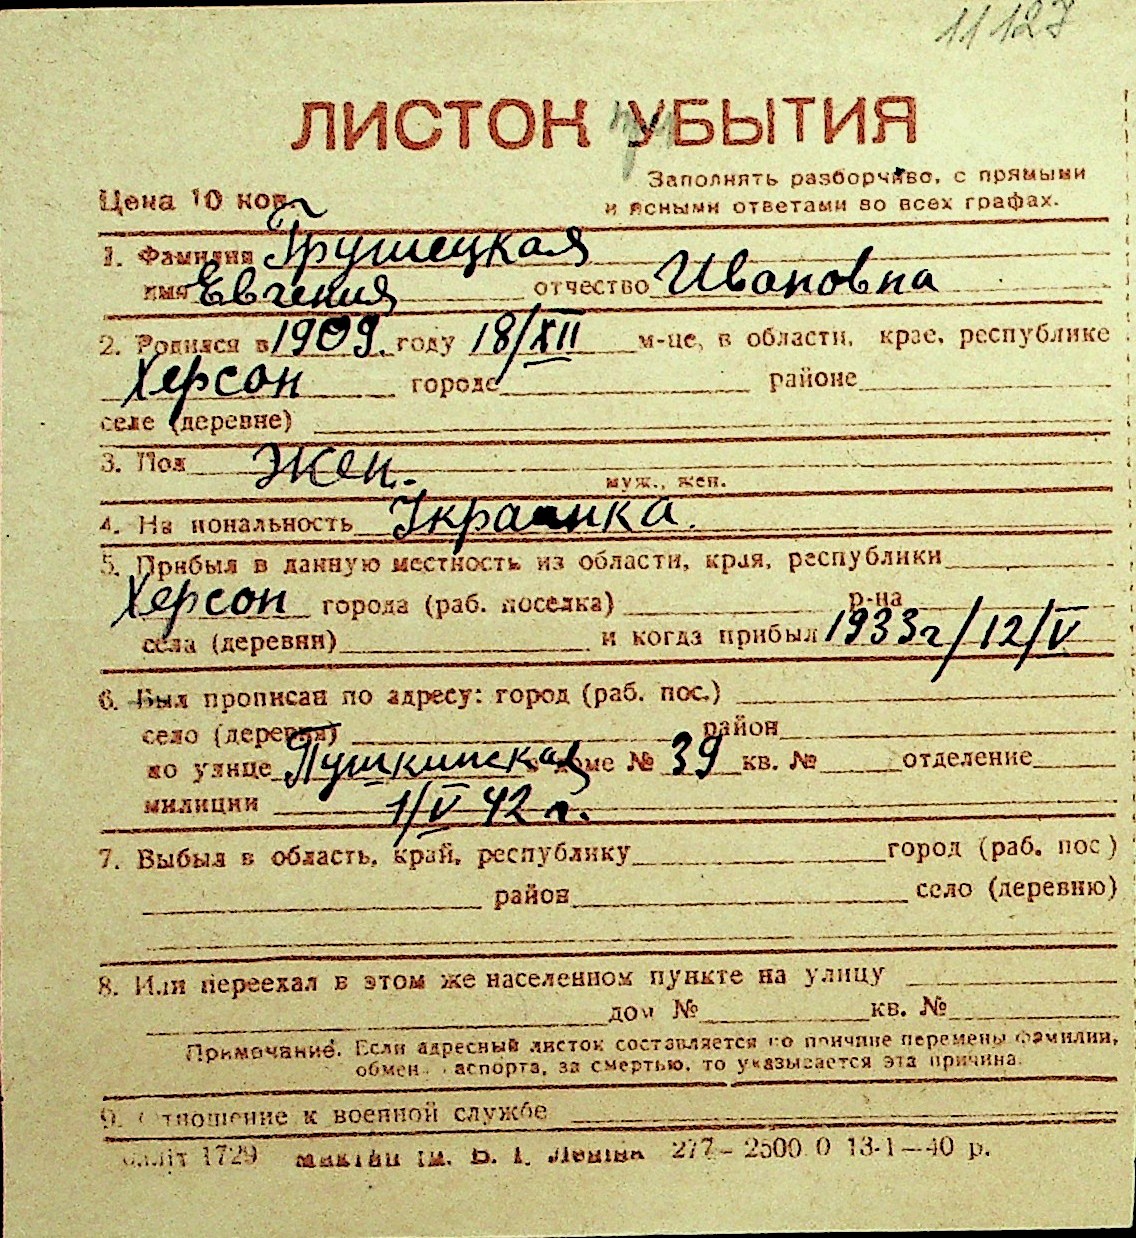 11127
ЛИСТОК УБЫТИЯ
Заполнять разборчиво, с прямыми
Цена 10 коп.
и ясными ответами во всех графах.
1. Фамилия Грушецкая
имя Евгения отчество Ивановна
2. Родился в 1909 году 18/XII м-це, в области, крае, республике
Херсон городе районе
селе (деревне)
3. Пол Жен.
муж., жен.
4. На иональность Украинка.
5. Прибыл в данную местность из области, края, республики
Херсон города (раб. поселка) р-на
села (деревни) и когда прибыл 1933г/12/V
6. Был прописан по адресу: город (раб. пос.)
село (деревня) район
по улице Пушкинская доме № 39 кв. № отделение
милиции 1/V 42 г.
7. Выбыл в область, край, республику город (раб. пос)
район село (деревню)
8. Или переехал в этом же населенном пункте на улицу
дом № кв. №
Примечание. Если адресный листок составляется по причине перемены фамилии,
обмен аспорта, за смертью, то указывается эта причина.
9. Отношение к военной службе
1729 ім. В. І. Леніна 277—2500 0 13-1—40 р.